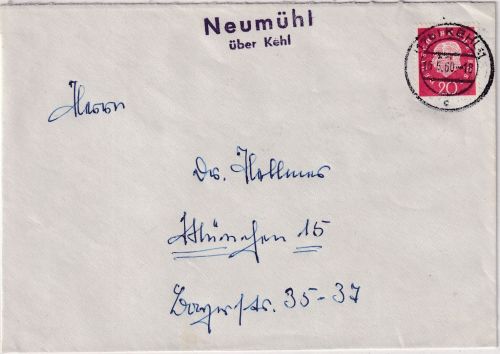 Neumühl
über Kehl
KEHL
5.60-18
20
Herrn
Dr. Hollmer
München 15
Bayerstr. 35-37